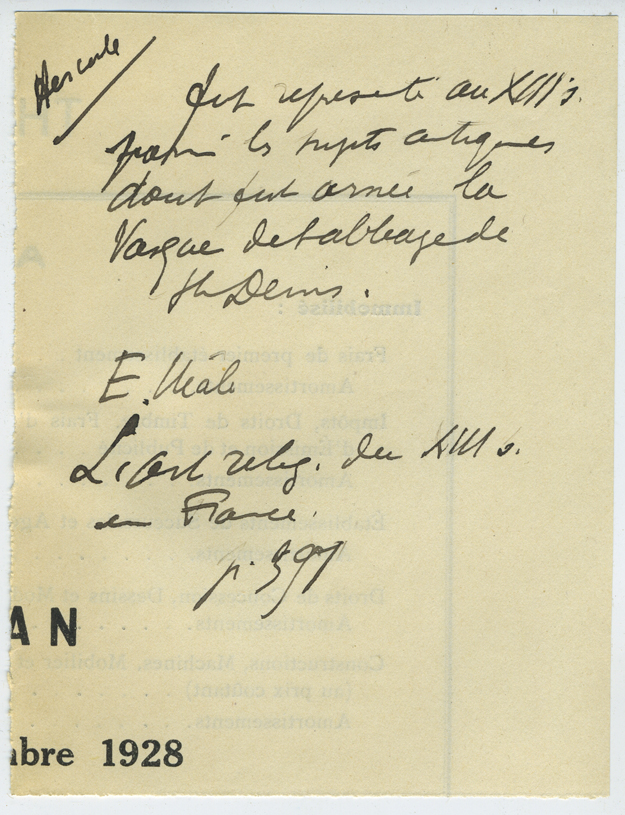 Hercule
fut représenté au XIII s.
parmi les sujets antiques
dont fut ornée la
Vasque de l'abbaye de
St Denis.
E. Male
L'art relig. du XIII s.
en France.
p. 397
AN
bre 1928
Immobilisé :
Frais de premier établissement
Amortissements
Impôts, Droits de Timbre, Frais
Amortissements
Droits de
Dessins et
Amortissements.
Constructions, Machines, Mobilier
(au prix coûtant)
Amortissements.